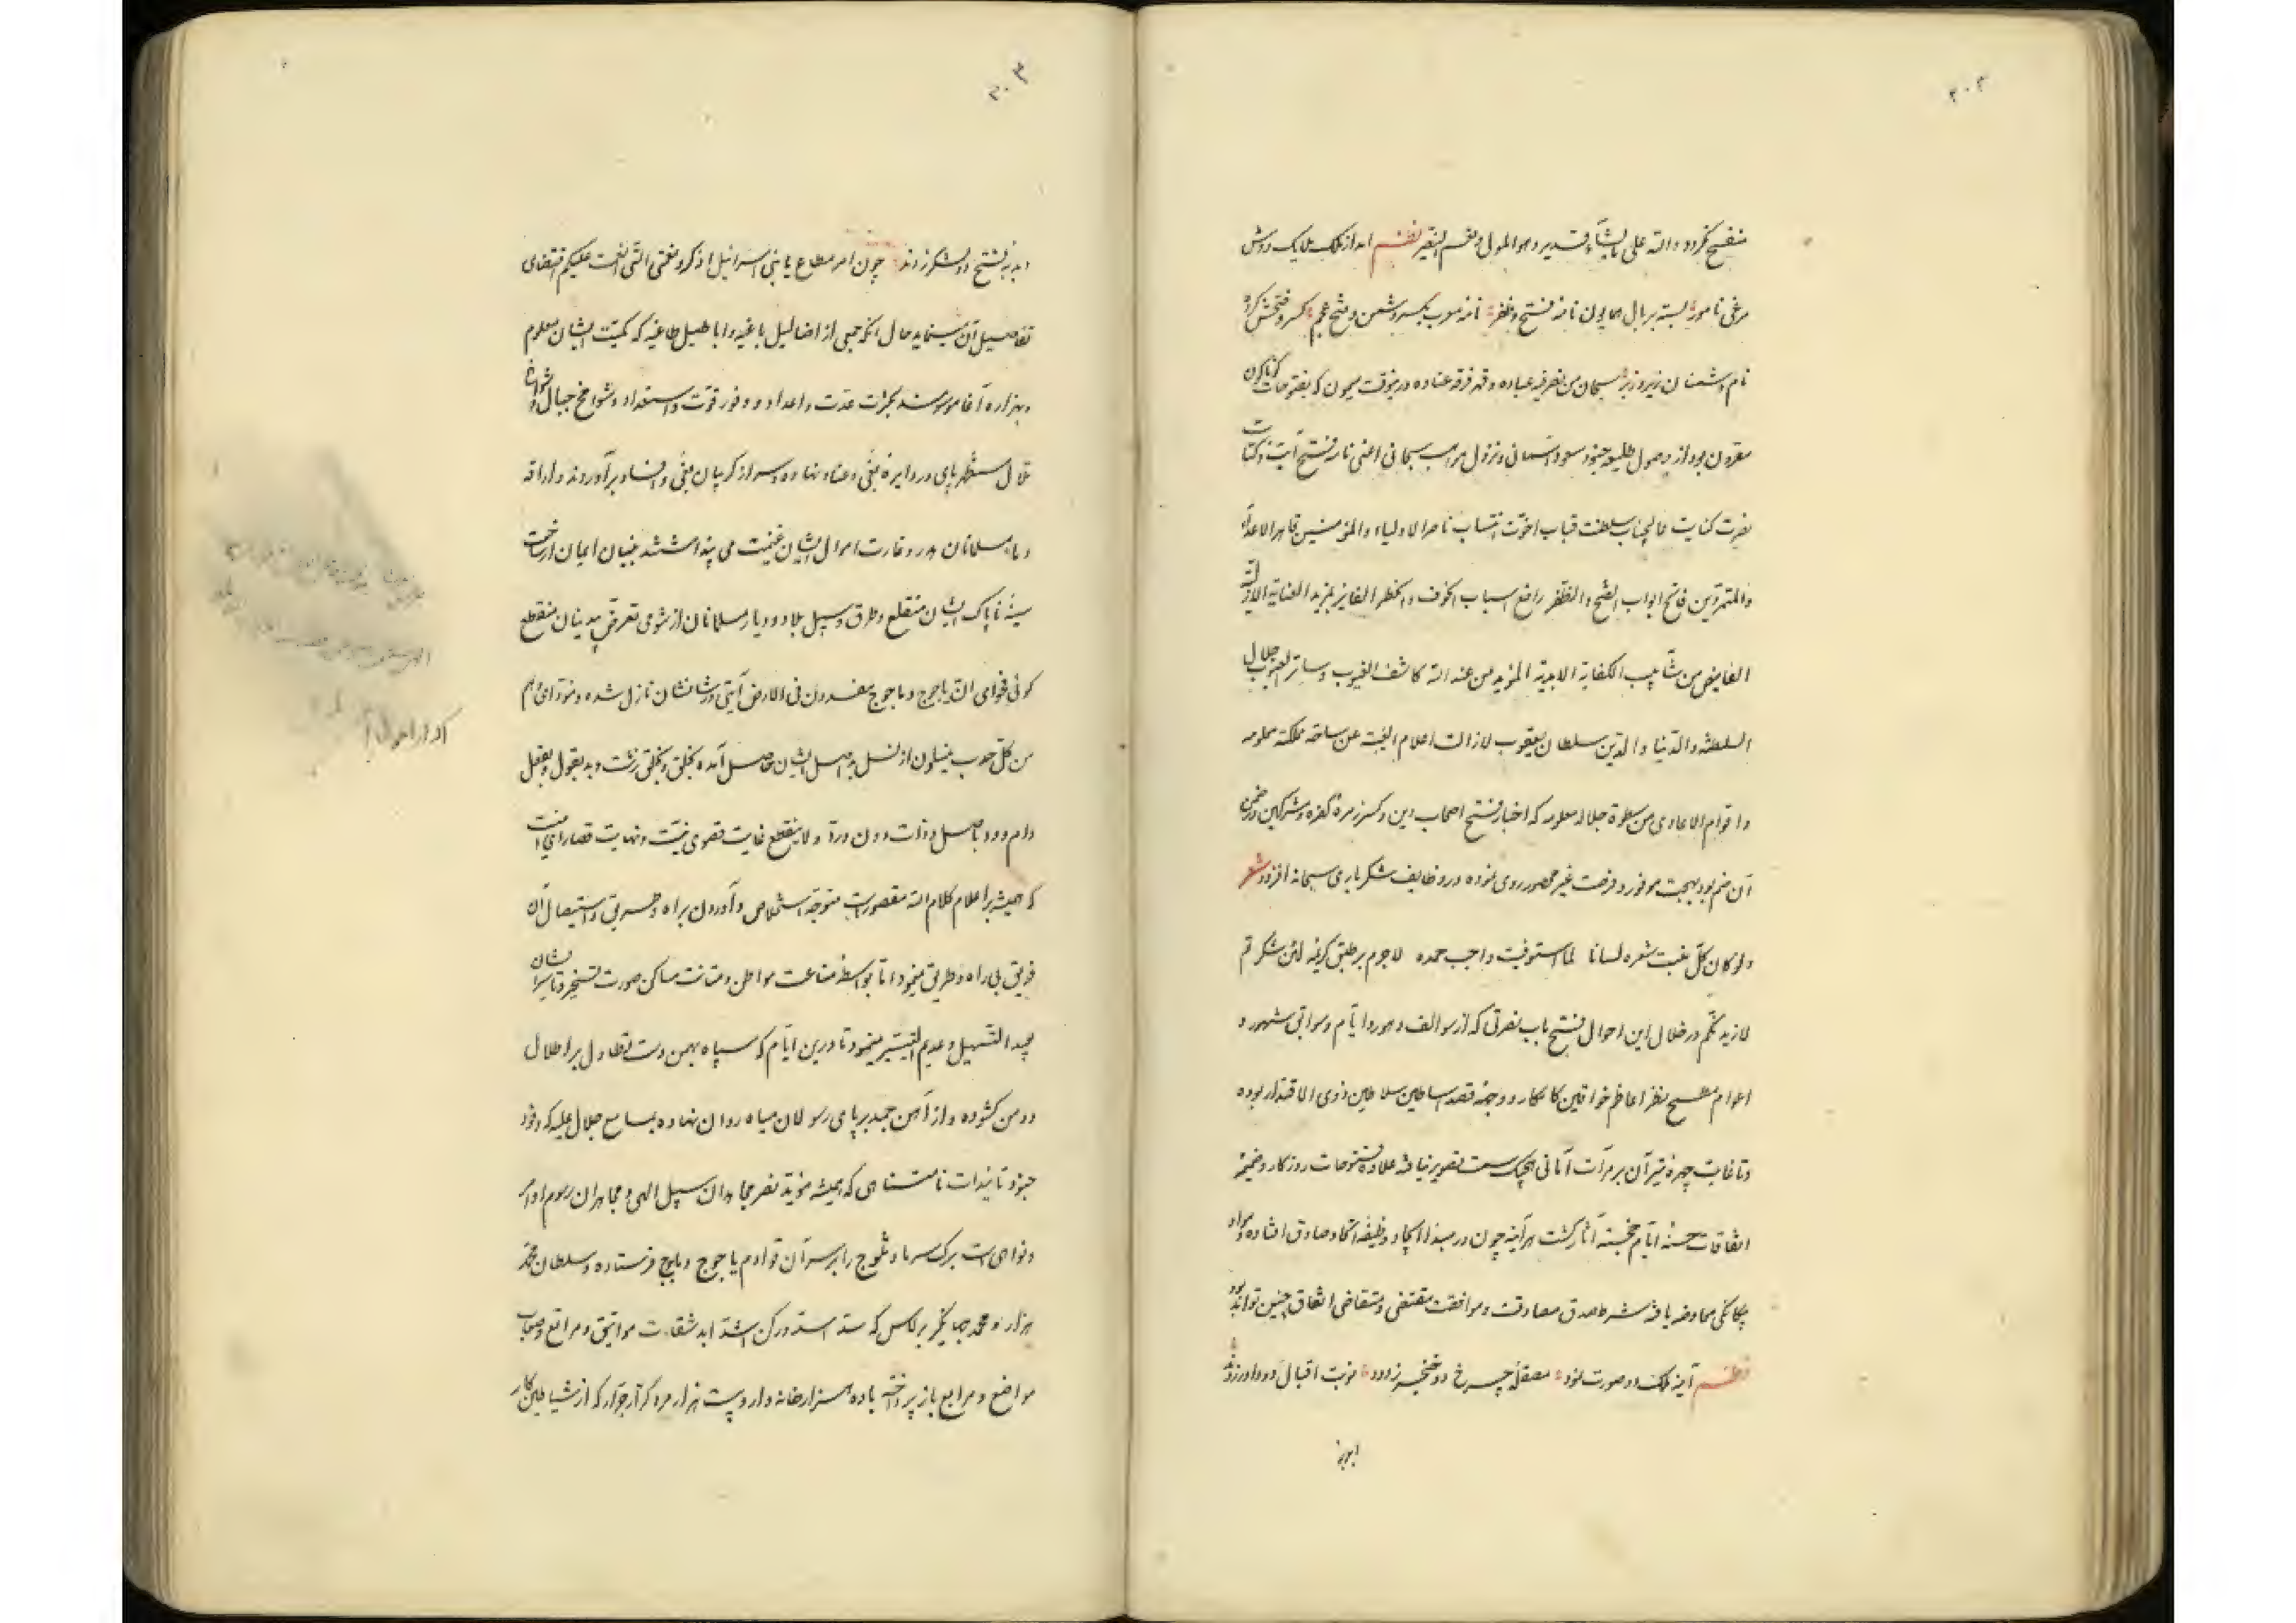 ۲۰۲
منفسح گردد والله علی ما یشاء قدیر و هو المولی و نعم النصیر نظم امد از فلک ملایک روش
مرغی نامور بسته بر بال همایون نامه فتح و ظفر نامه منوب بکسر دشمن و فتح عجم کسر و فتحش کرده
نام دشمنان زیر و زبر سبحان من نصر فیه عباده و قهر فرقه عناده درینوقت میمون که بفتوحات کوناکون
مقرون بود از وصول طلیعه جنود مسعود آسمانی و نزول مواهب سبحانی اعنی نامه فتح آیت و کتابت
نصرت کنایت عالیجناب سلطنت قباب اخوت انتساب ناصر الاولیاء والمؤمنین قاهر الاعداء
والمتمردین فاتح ابواب الفتح والظفر رافع اسباب الخوف والخطر الفایز بمزید العنایة الازلیة
الفایض من شآبیب الکفایة الابدیة المؤید من عند الله کاشف الغیوب وساتر العیوب جلال
السلطنة والدنیا والدین سلطان یعقوب لازالت اعلام البغیة عن ساحة مملکته محلومه
واقوام الاعادی من سطوة جلاله معلومه که اخبار فتح اصحاب دین و کسر زمره کفره و مشرکین در ضمن
آن ضم بود بهجت موفور و فرحت غیر محصور روی نموده در وظایف شکر باری سبحانه افزود شعر
ولو کان کل منبت شعره لسانا لما استوفیت واجب حمده لاجرم بر طبق کریمه لئن شکرتم
لازیدنکم در خلال این احوال فتح باب نصرتی که از سوالف دهور و ایام و سوابق شهور و
اعوام مطمح نظر اعاظم خواقین کامکار و وجهه قصد اساطین سلاطین ذوی الاقتدار بوده
و تا غایت چهره تیسر آن بر مرآت امانی هیچیک سمت تصویر نیافته علاوه فتوحات روزکار و ضمیمه
اتفاقات حسنه ایام خجسته آثار کشت هرآینه چون در مبدا ایجاد وظیفه اتحاد صادق افتاده و مواد
یکانکی معاوضه یافته شرط صدق مصادقت و موافقت مقتضی و متقاضی اتفاق چنین تواند بود
نظم آینه ملک دو صورت نمود مصقله چرخ دو خنجر زدود نوبت اقبال دو داور زدند
ابد به
۲۰۳
ابد به فتح دو لشکر زدند چون امر مطاع یا بنی اسرائیل اذکروا نعمتی التی انعمت علیکم اقتضای
تفاصیل آن مینماید حال آنکه جمعی از اضالیل باغیه و اباطیل طاغیه که کمیت ایشان معلوم
و بهزاره آغا موسومند بکثرت عدت و اعداد و وفور قوت و استعداد و شوامخ جبال و شواهق
تلال مستظهر پای در دایره بغی و عناد نهاده و سر از کریبان بغی و افساد برآورده و اراقه
دماء مسلمانان هدر و غارت اموال ایشان غنیمت می پنداشتند بنیان ایمان از ساحت
سینه ناپاک ایشان منقلع و طرق و سبیل بلاد و دیار مسلمانان از شومی تعرض بیدینان منقطع
کوئی فحوای ان یاجوج و ماجوج مفسدون فی الارض آیتی در شانشان نازل شده و مودای وهم
من کل حدب ینسلون از نسل بد اصل ایشان حاصل آمده بخلق و بخلقی زشت و بد بقول و بفعل
دام و دد باصل و ذات دون و رد و لاینقطع غایت قصوی نیت و نهایت قصارای امنیت
که همیشه بر اعلام کلام الله مقصورست متوجه استخلاص و آوردن براه و حسرتی و استیصال آن
فریق بی راه و طریق مینمود اما بواسطه مناعت مواطن و متانت مساکن صورت تسخیر و تاسیر ایشان
بعید التسهیل و عدیم التیسیر مینمود تا درین ایام که سپاه بهمن دست تطاول بر اطلال
و دمن کشوده و از آهن جمد بر پای رسولان میاه روان نهاده بمسامع جلال علیه که وفود
جنود تأییدات نامتناهی که همیشه مؤید نصر مجاهدان سبیل الهی و مجاهران رسوم اوامر
و نواهی است برک سرما و ثلوج را بر سر آن قوادم یاجوج و ماجوج فرستاده و سلطان محمد
هزاره و محمد جهانگیر برلاس که سد اسد و رکن اشد ابد شقاوت مواثیق و مراتع و صحاب
مواضع و مرابع باز پرداخته با ده هزار خانه وار و بیست هزار مرد کرار جرار که از شیاطین کار
ادوار احوال